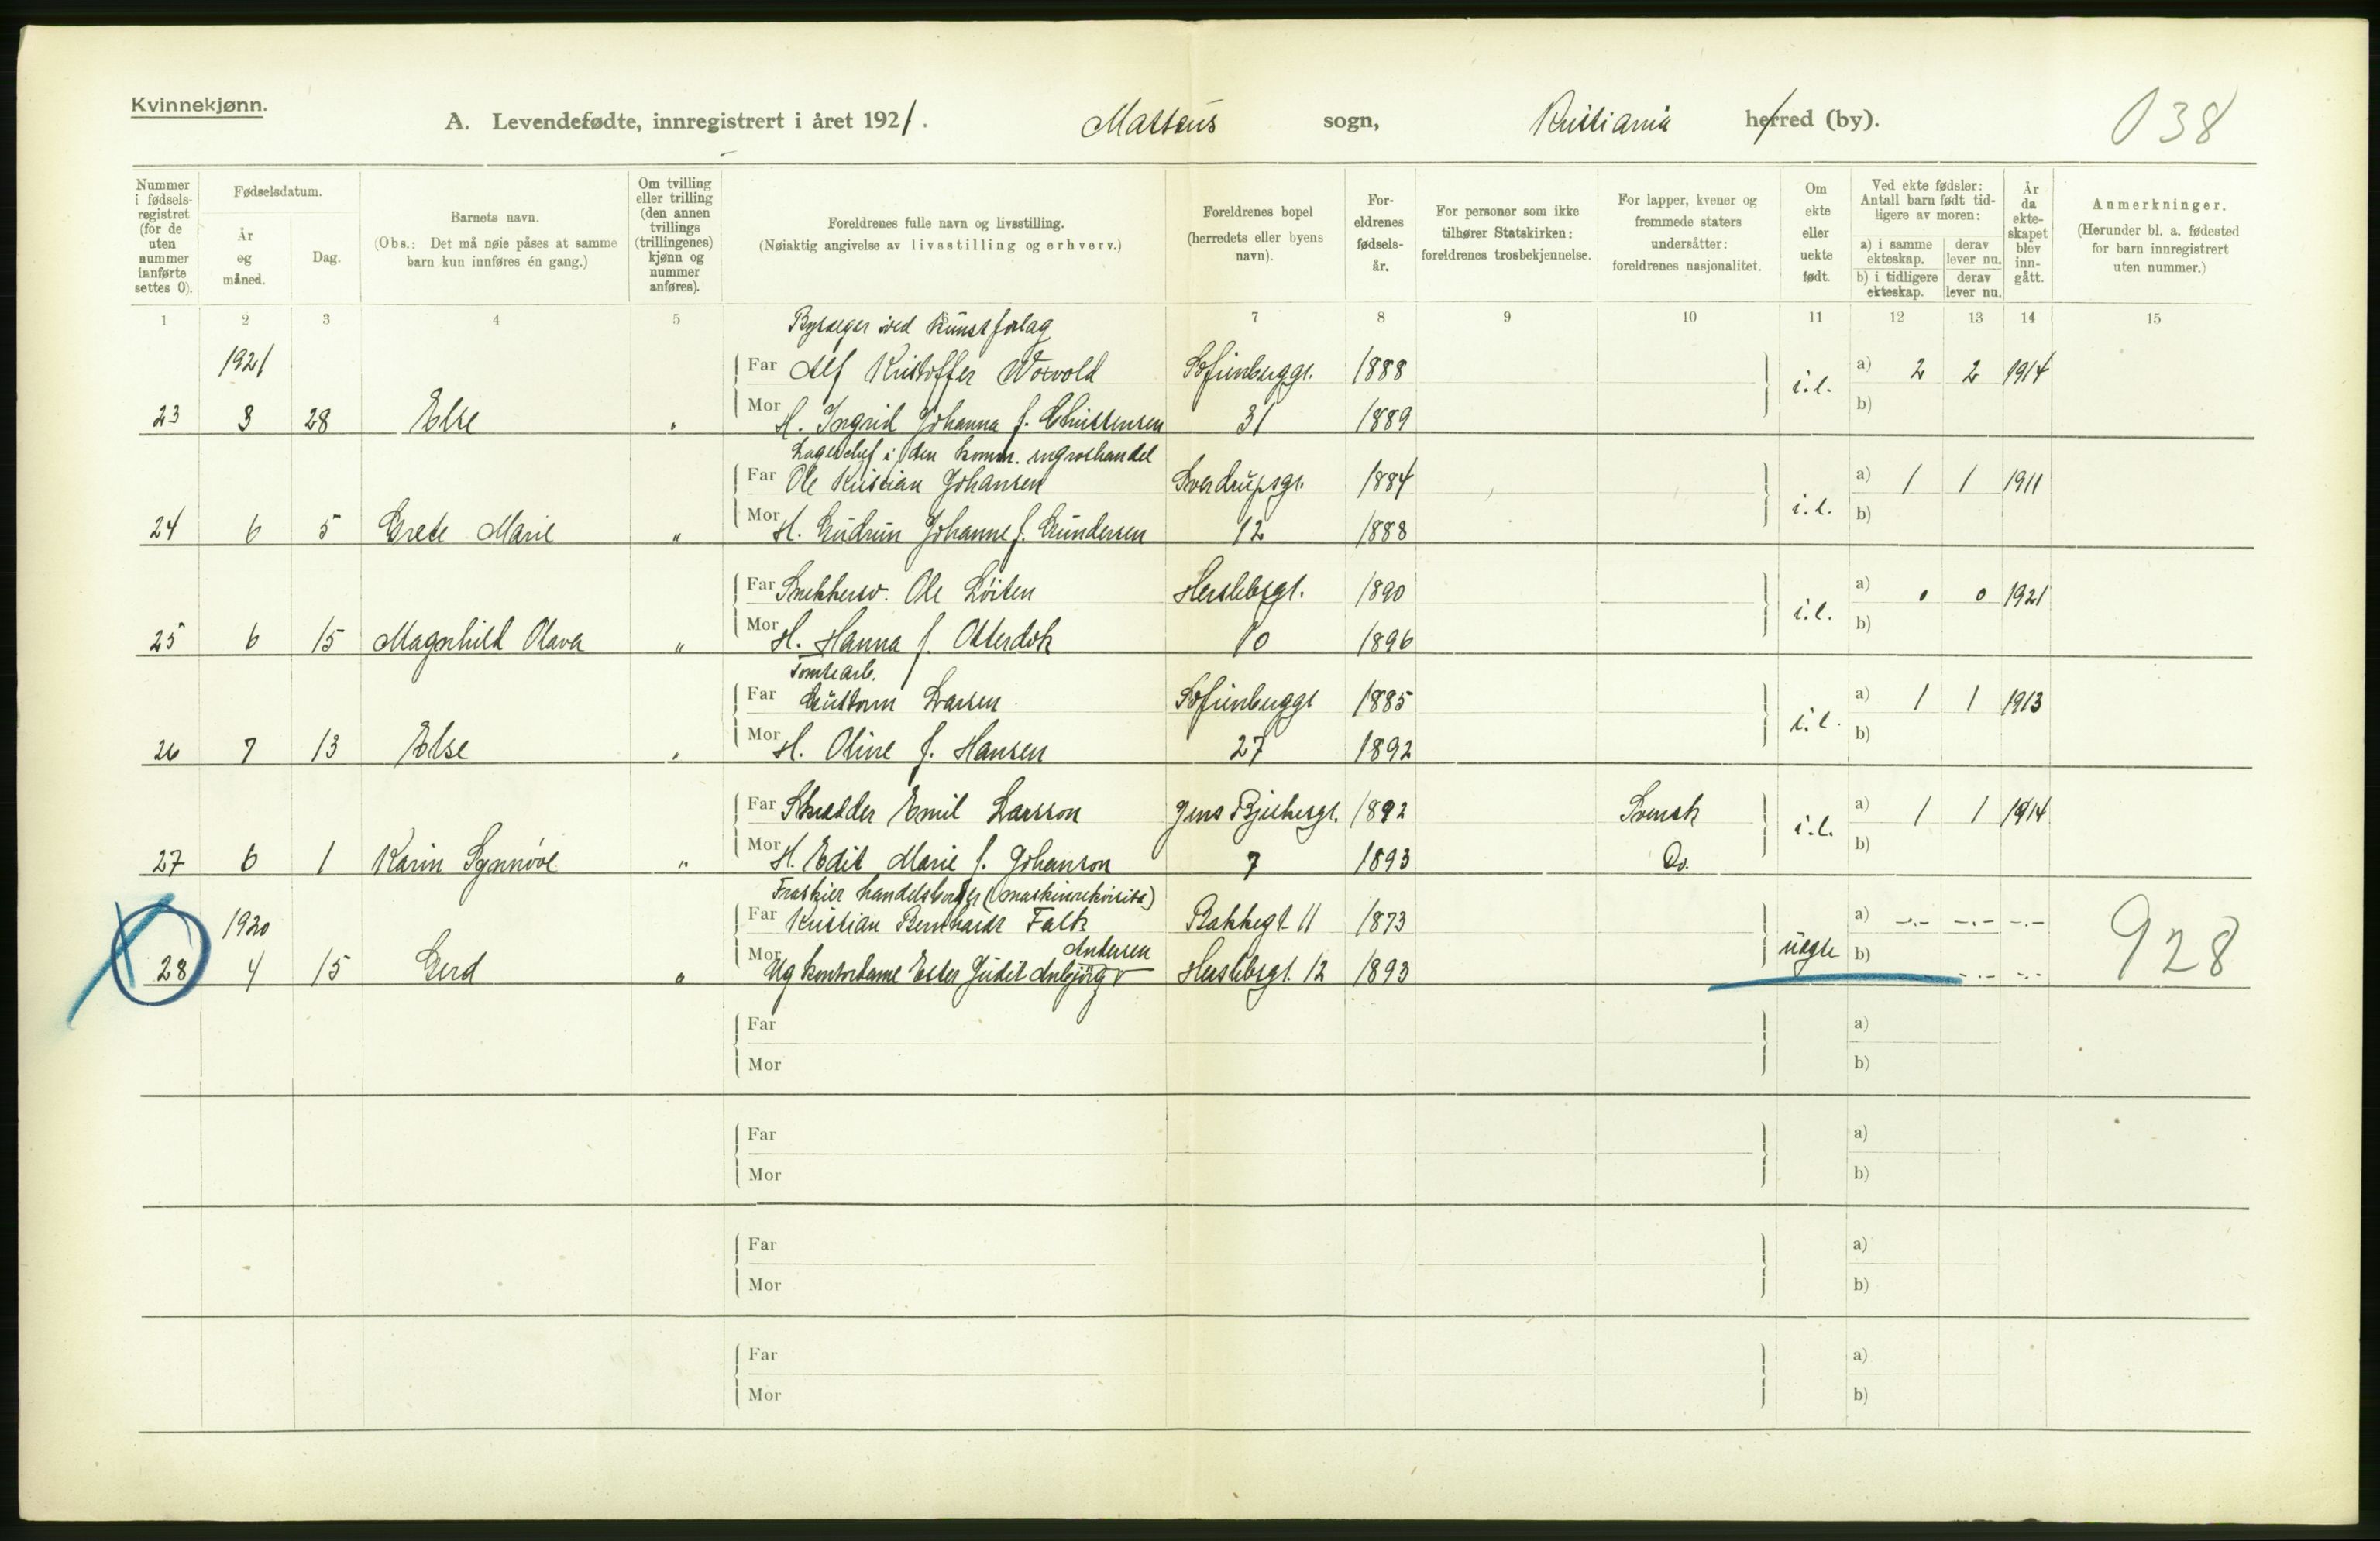 Kvinnekjønn.
A. Levendefødte, innregistrert i året 1921. Matteus sogn, Kristiania herred (by). 038
Nummer i fødselsregistret (for de uten nummer innførte settes 0).
Fødselsdatum.
År og måned.
Dag.
Barnets navn.
(Obs.: Det må nøie påses at samme barn kun innføres én gang.)
Om tvilling eller trilling (den annen tvillings (trillingenes) kjønn og nummer anføres).
Foreldrenes fulle navn og livsstilling.
(Nøiaktig angivelse av livsstilling og erhverv.)
Foreldrenes bopel (herredets eller byens navn).
Foreldrenes fødselsår.
For personer som ikke tilhører Statskirken: foreldrenes trosbekjennelse.
For lapper, kvener og fremmede staters undersåtter: foreldrenes nasjonalitet.
Om ekte eller uekte født.
Ved ekte fødsler: Antall barn født tidligere av moren:
a) i samme ekteskap. derav lever nu.
b) i tidligere ekteskap. derav lever nu.
År da ekteskapet blev inngått.
Anmerkninger.
(Herunder bl. a. fødested for barn innregistrert uten nummer.)
1 2 3 4 5 7 8 9 10 11 12 13 14 15
ved Kunstforlag
1921 Far Alf Kristoffer Sofienberggt. 1888 a) 2 2 1914
i.l. b)
23 3 28 Else " Mor H. Ingrid Johanna f. Christensen 31 1889
Lagerchef i den komm. engroshandel
Far Ole Kristian Johansen Sverdrupsgt. 1884 a) 1 1 1911
i.l. b)
24 6 5 Grete Marie " Mor H. Gudrun Johanne f. Gundersen 12 1888
Far Snekkersv. Ole Löiten Herslebsgt. 1890 a) 0 0 1921
i.l. b)
25 6 15 Magnhild Olava " Mor H. Hanna f. 10 1896
Tomtearb.
Far Larsen Sofienberggt 1885 a) 1 1 1913
i.l. b)
26 7 13 Else " Mor H. Oline f. Hansen 27 1892
Far Skredder Emil Larsson Jens Bjelkesgt. 1892 Svensk a) 1 1 1914
i.l. b)
27 6 1 Karin Synnöve " Mor H. Edit Marie f. Johanson 7 1893 Do.
Fraskilt (maskinrekvisita)
1920 Far Kristian Bernhard Falk Bakkegt 11 1873 a) -.- -.- -.-
Andersen
28 4 15 Gerd " Mor Ug kontordame Ester Judit Herslebsgt. 12 1893 uegte b) -.- -.- 928
Far a)
Mor b)
Far a)
Mor b)
Far a)
Mor b)
Far a)
Mor b)